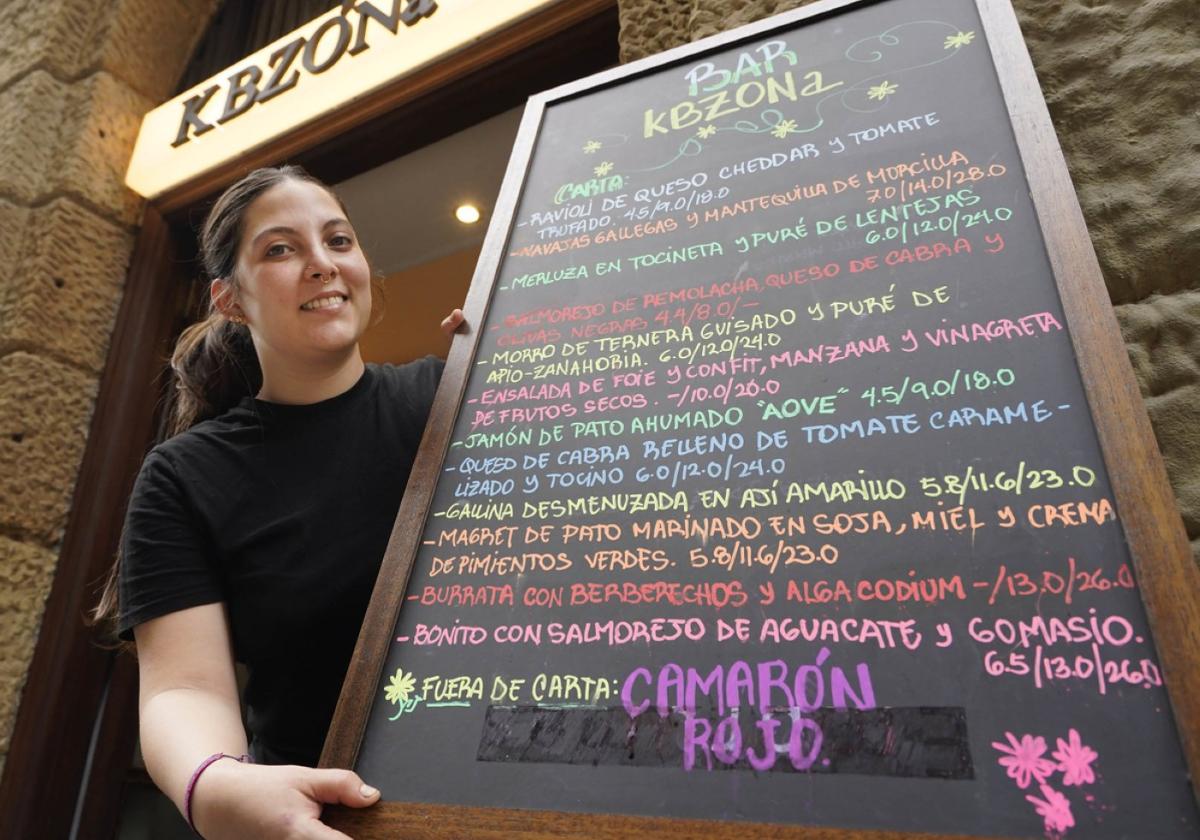 KBZONa
BAR
KBZONa
CARTA:
-RAVIOLI DE QUESO CHEDDAR y TOMATE
TRUFADO. 4.5/9.0/18.0
-NAVAJAS GALLEGAS y MANTEQUILLA DE MORCILLA
7.0/14.0/28.0
-MERLUZA EN TOCINETA y PURÉ DE LENTEJAS
6.0/12.0/24.0
-SALMOREJO DE REMOLACHA, QUESO DE CABRA y
OLIVAS NEGRAS 4.4/8.0/-
-MORRO DE TERNERA GUISADO y PURÉ DE
APIO-ZANAHORIA. 6.0/12.0/24.0
-ENSALADA DE FOIE y CONFIT, MANZANA y VINAGRETA
DE FRUTOS SECOS. -/10.0/20.0
-JAMÓN DE PATO AHUMADO "AOVE" 4.5/9.0/18.0
-QUESO DE CABRA RELLENO DE TOMATE CARAME-
LIZADO y TOCINO 6.0/12.0/24.0
-GALLINA DESMENUZADA EN AJÍ AMARILLO 5.8/11.6/23.0
-MAGRET DE PATO MARINADO EN SOJA, MIEL y CREMA
DE PIMIENTOS VERDES. 5.8/11.6/23.0
-BURRATA CON BERBERECHOS y ALGA CODIUM -/13.0/26.0
-BONITO CON SALMOREJO DE AGUACATE y GOMASIO.
6.5/13.0/26.0
FUERA DE CARTA: CAMARÓN
ROJO.